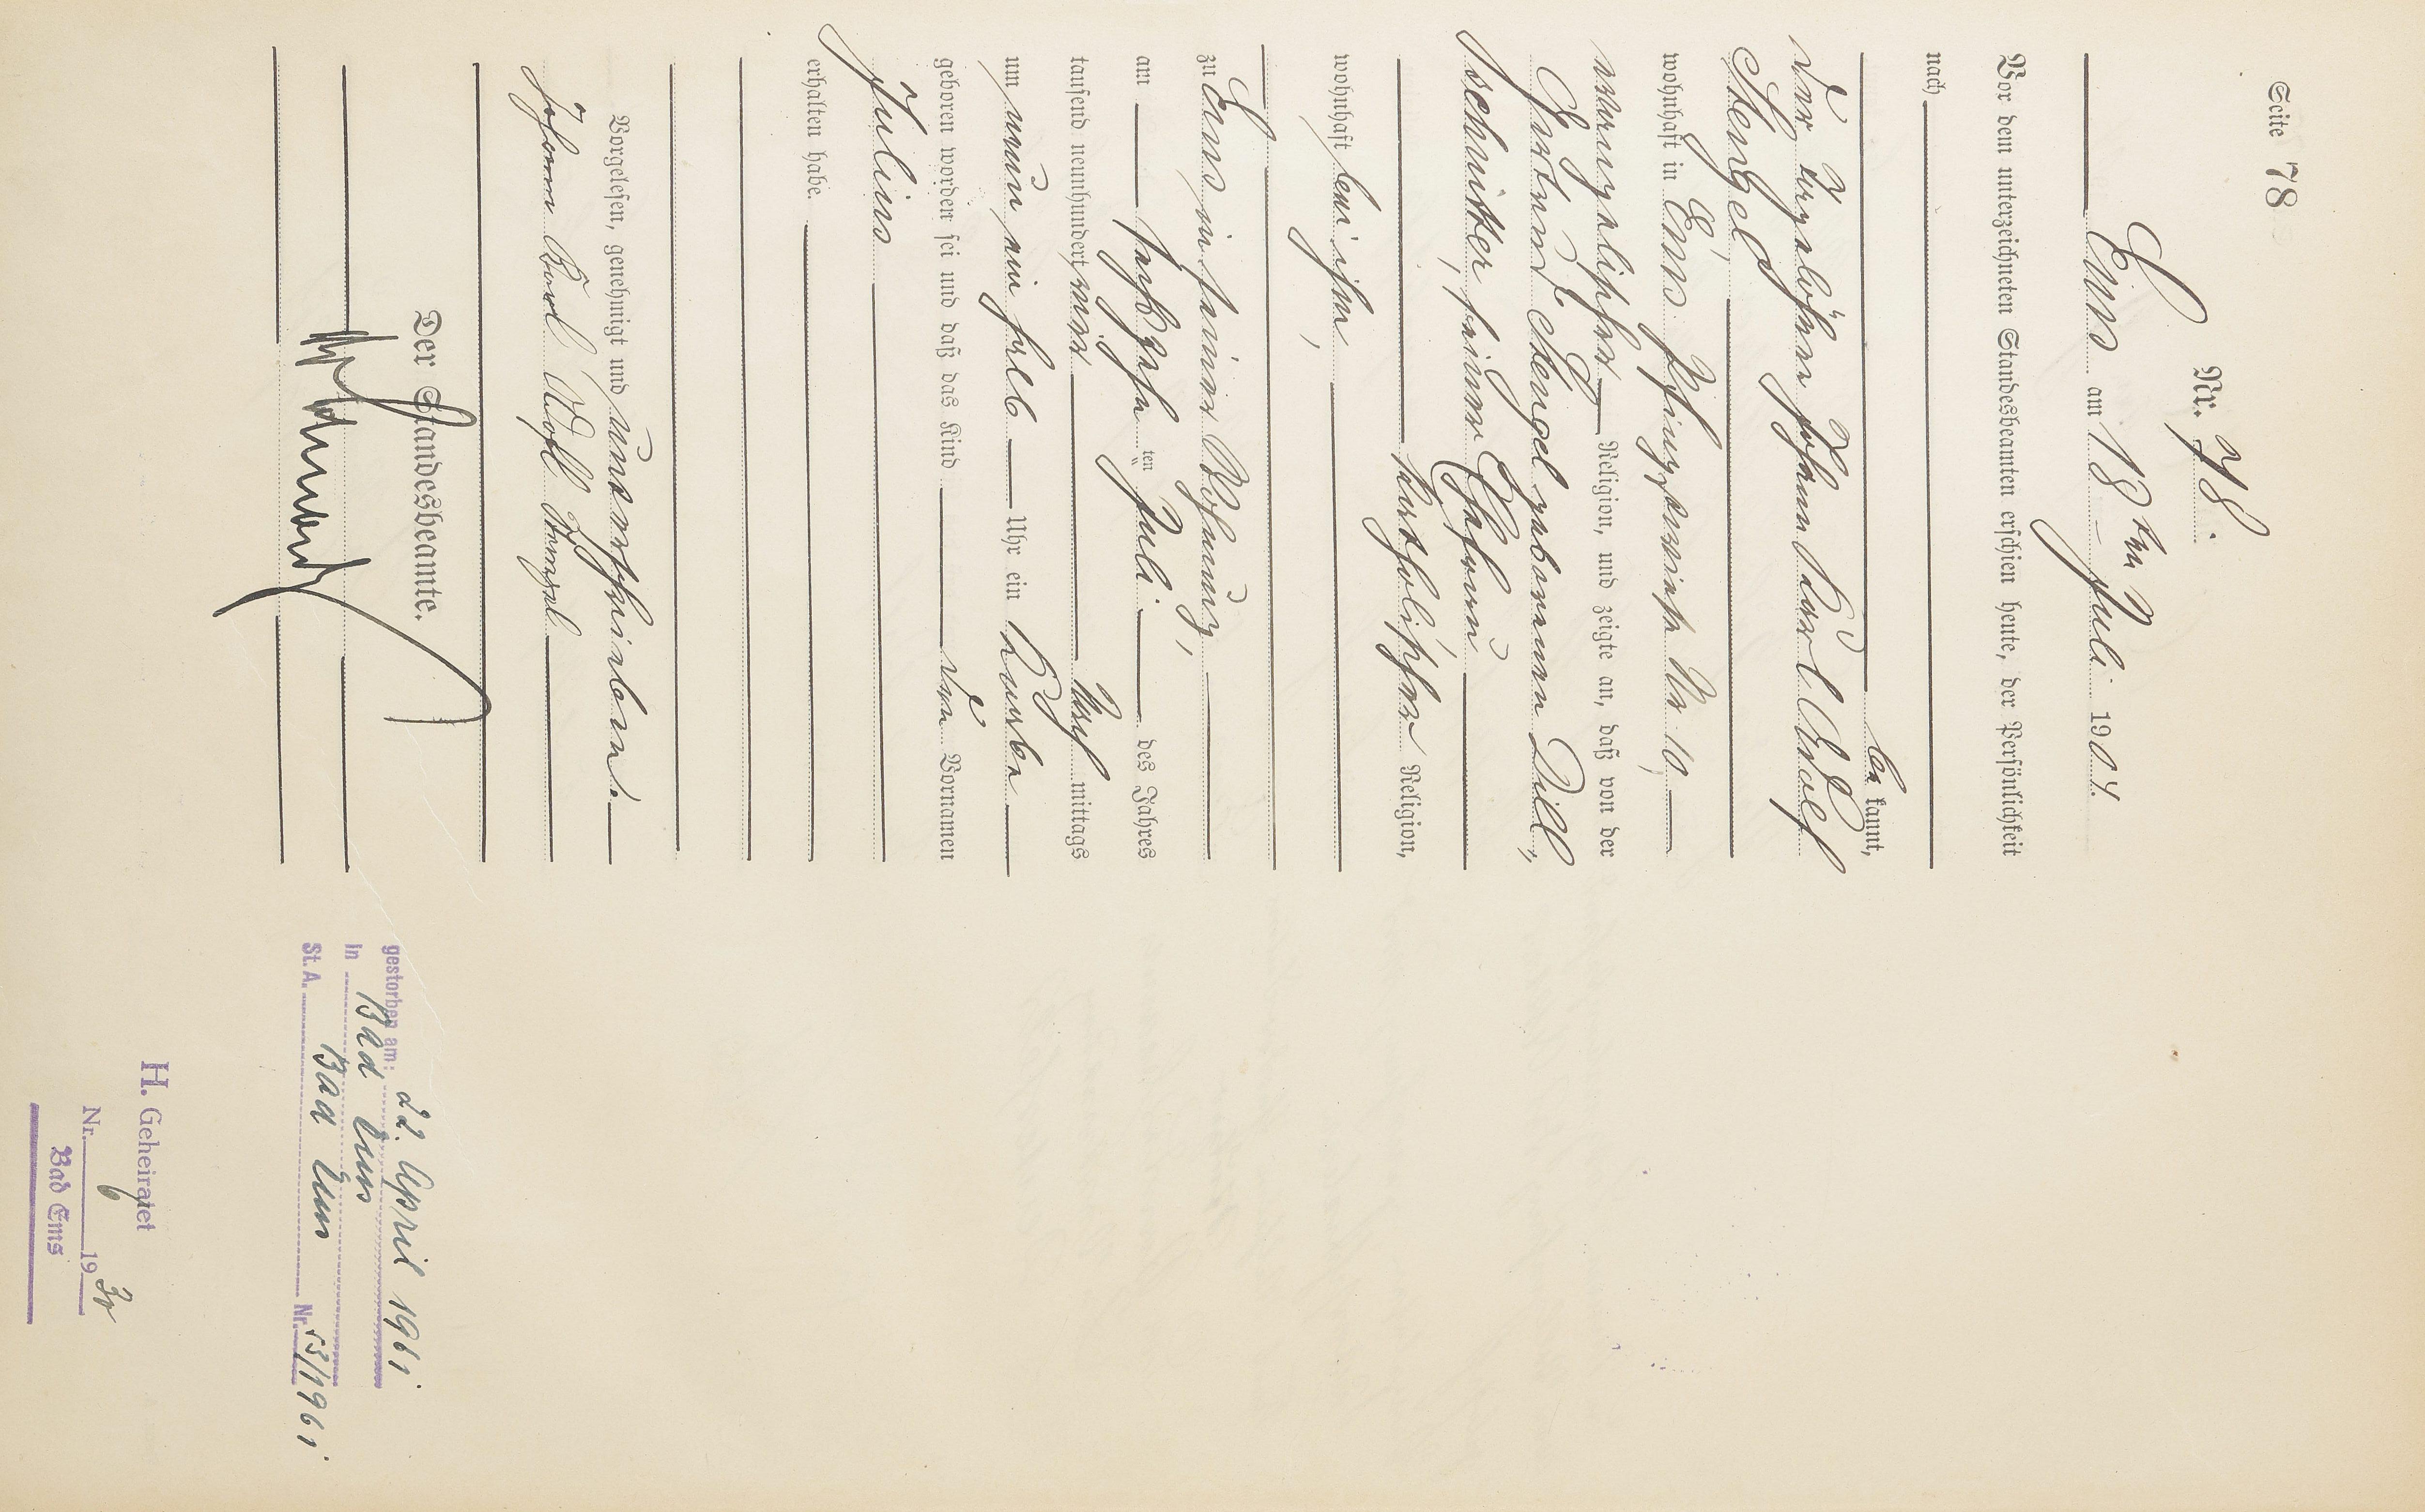 Seite 78
Nr. 78.
Ems am 18ten Juli 1904.
Vor dem unterzeichneten Standesbeamten erschien heute, der Persönlichkeit
nach
be kannt,
der Tagelöhner Johann Karl Adolf
Stengel,
wohnhaft in Ems Pfingstwiese No 10,
evangelischer Religion, und zeigte an, daß von der
Gertrud Stengel geborenen Dill,
seiner Ehefrau
katholischer Religion,
wohnhaft bei ihm,
zu Ems in seiner Wohnung,
am sechszehn ten Juli des Jahres
tausend neunhundert vier Nach mittags
um neun ein halb Uhr ein Knabe
geboren worden sei und daß das Kind den Vornamen
Julius
erhalten habe.
Vorgelesen, genehmigt und unterschrieben.
Johann Karl Adolf Stengel
Der Standesbeamte.
gestorben am: 22. April 1961
in Bad Ems
St. A. Bad Ems Nr. 53/1961.
H. Geheiratet
Nr. 6 19
Bad Ems